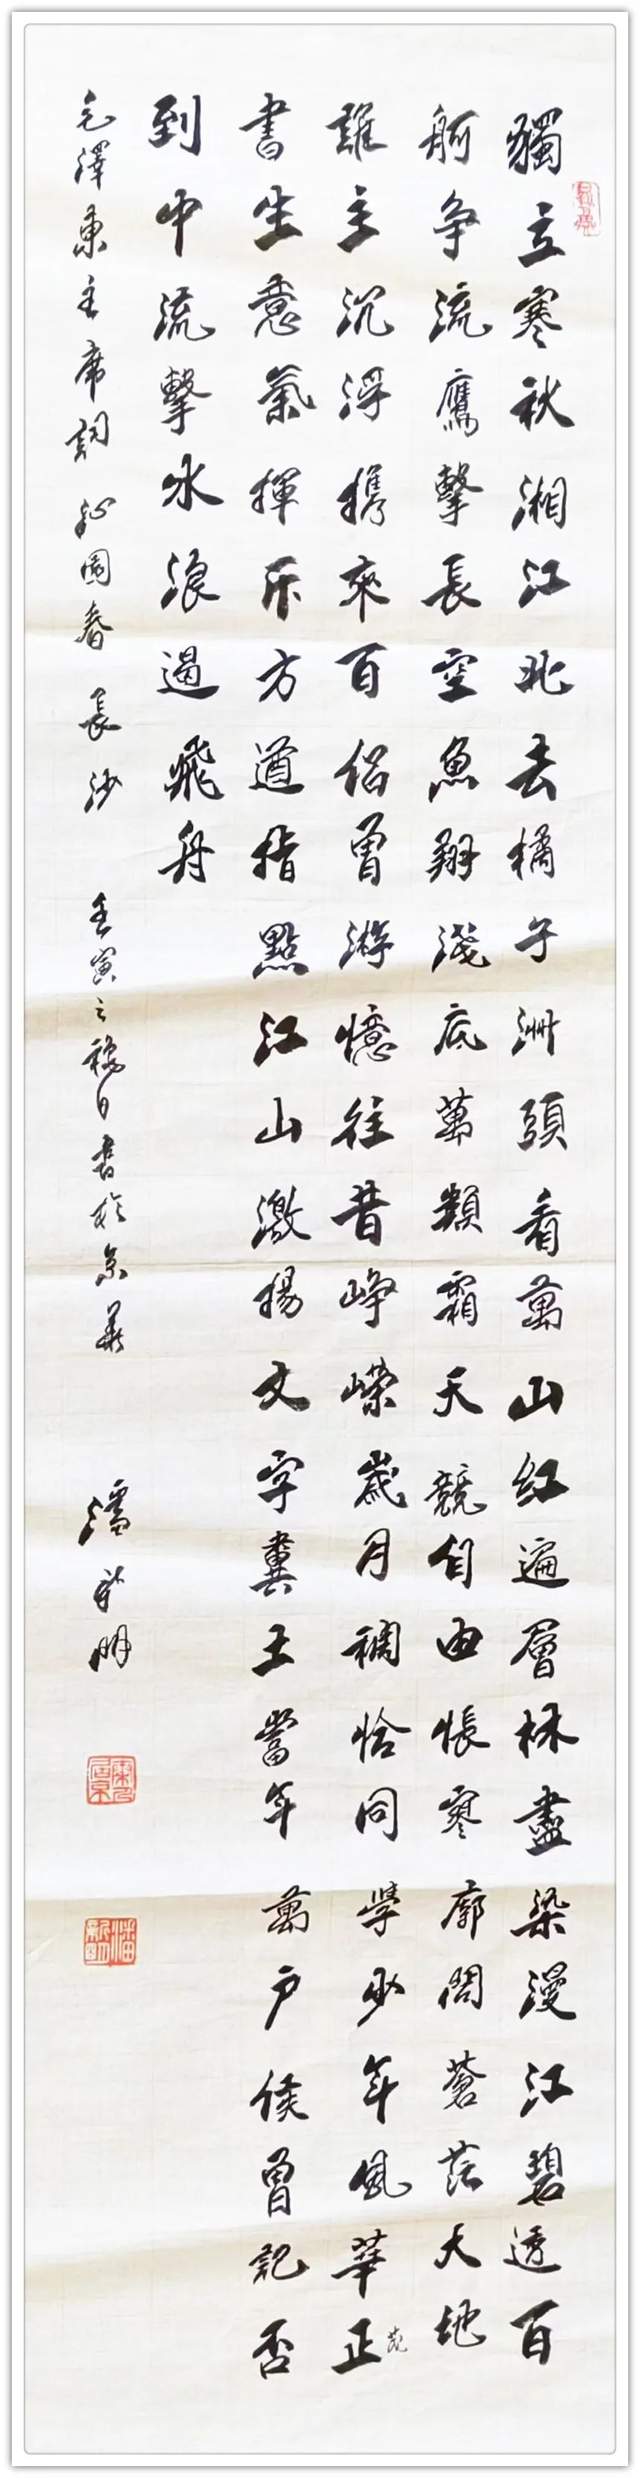 獨立寒秋湘江北去橘子洲頭看萬山紅遍層林盡染漫江碧透百
舸争流鷹擊長空魚翔淺底萬類霜天競自由悵寥廓問蒼茫大地
誰主沉浮攜來百侣曾游憶往昔崢嶸歲月稠恰同學少年風華正茂
書生意氣揮斥方遒指點江山激揚文字糞土當年萬户侯曾記否
到中流擊水浪遏飛舟
毛澤東主席詞沁園春長沙 壬寅之穐日書於京華 潘新明
潘新明